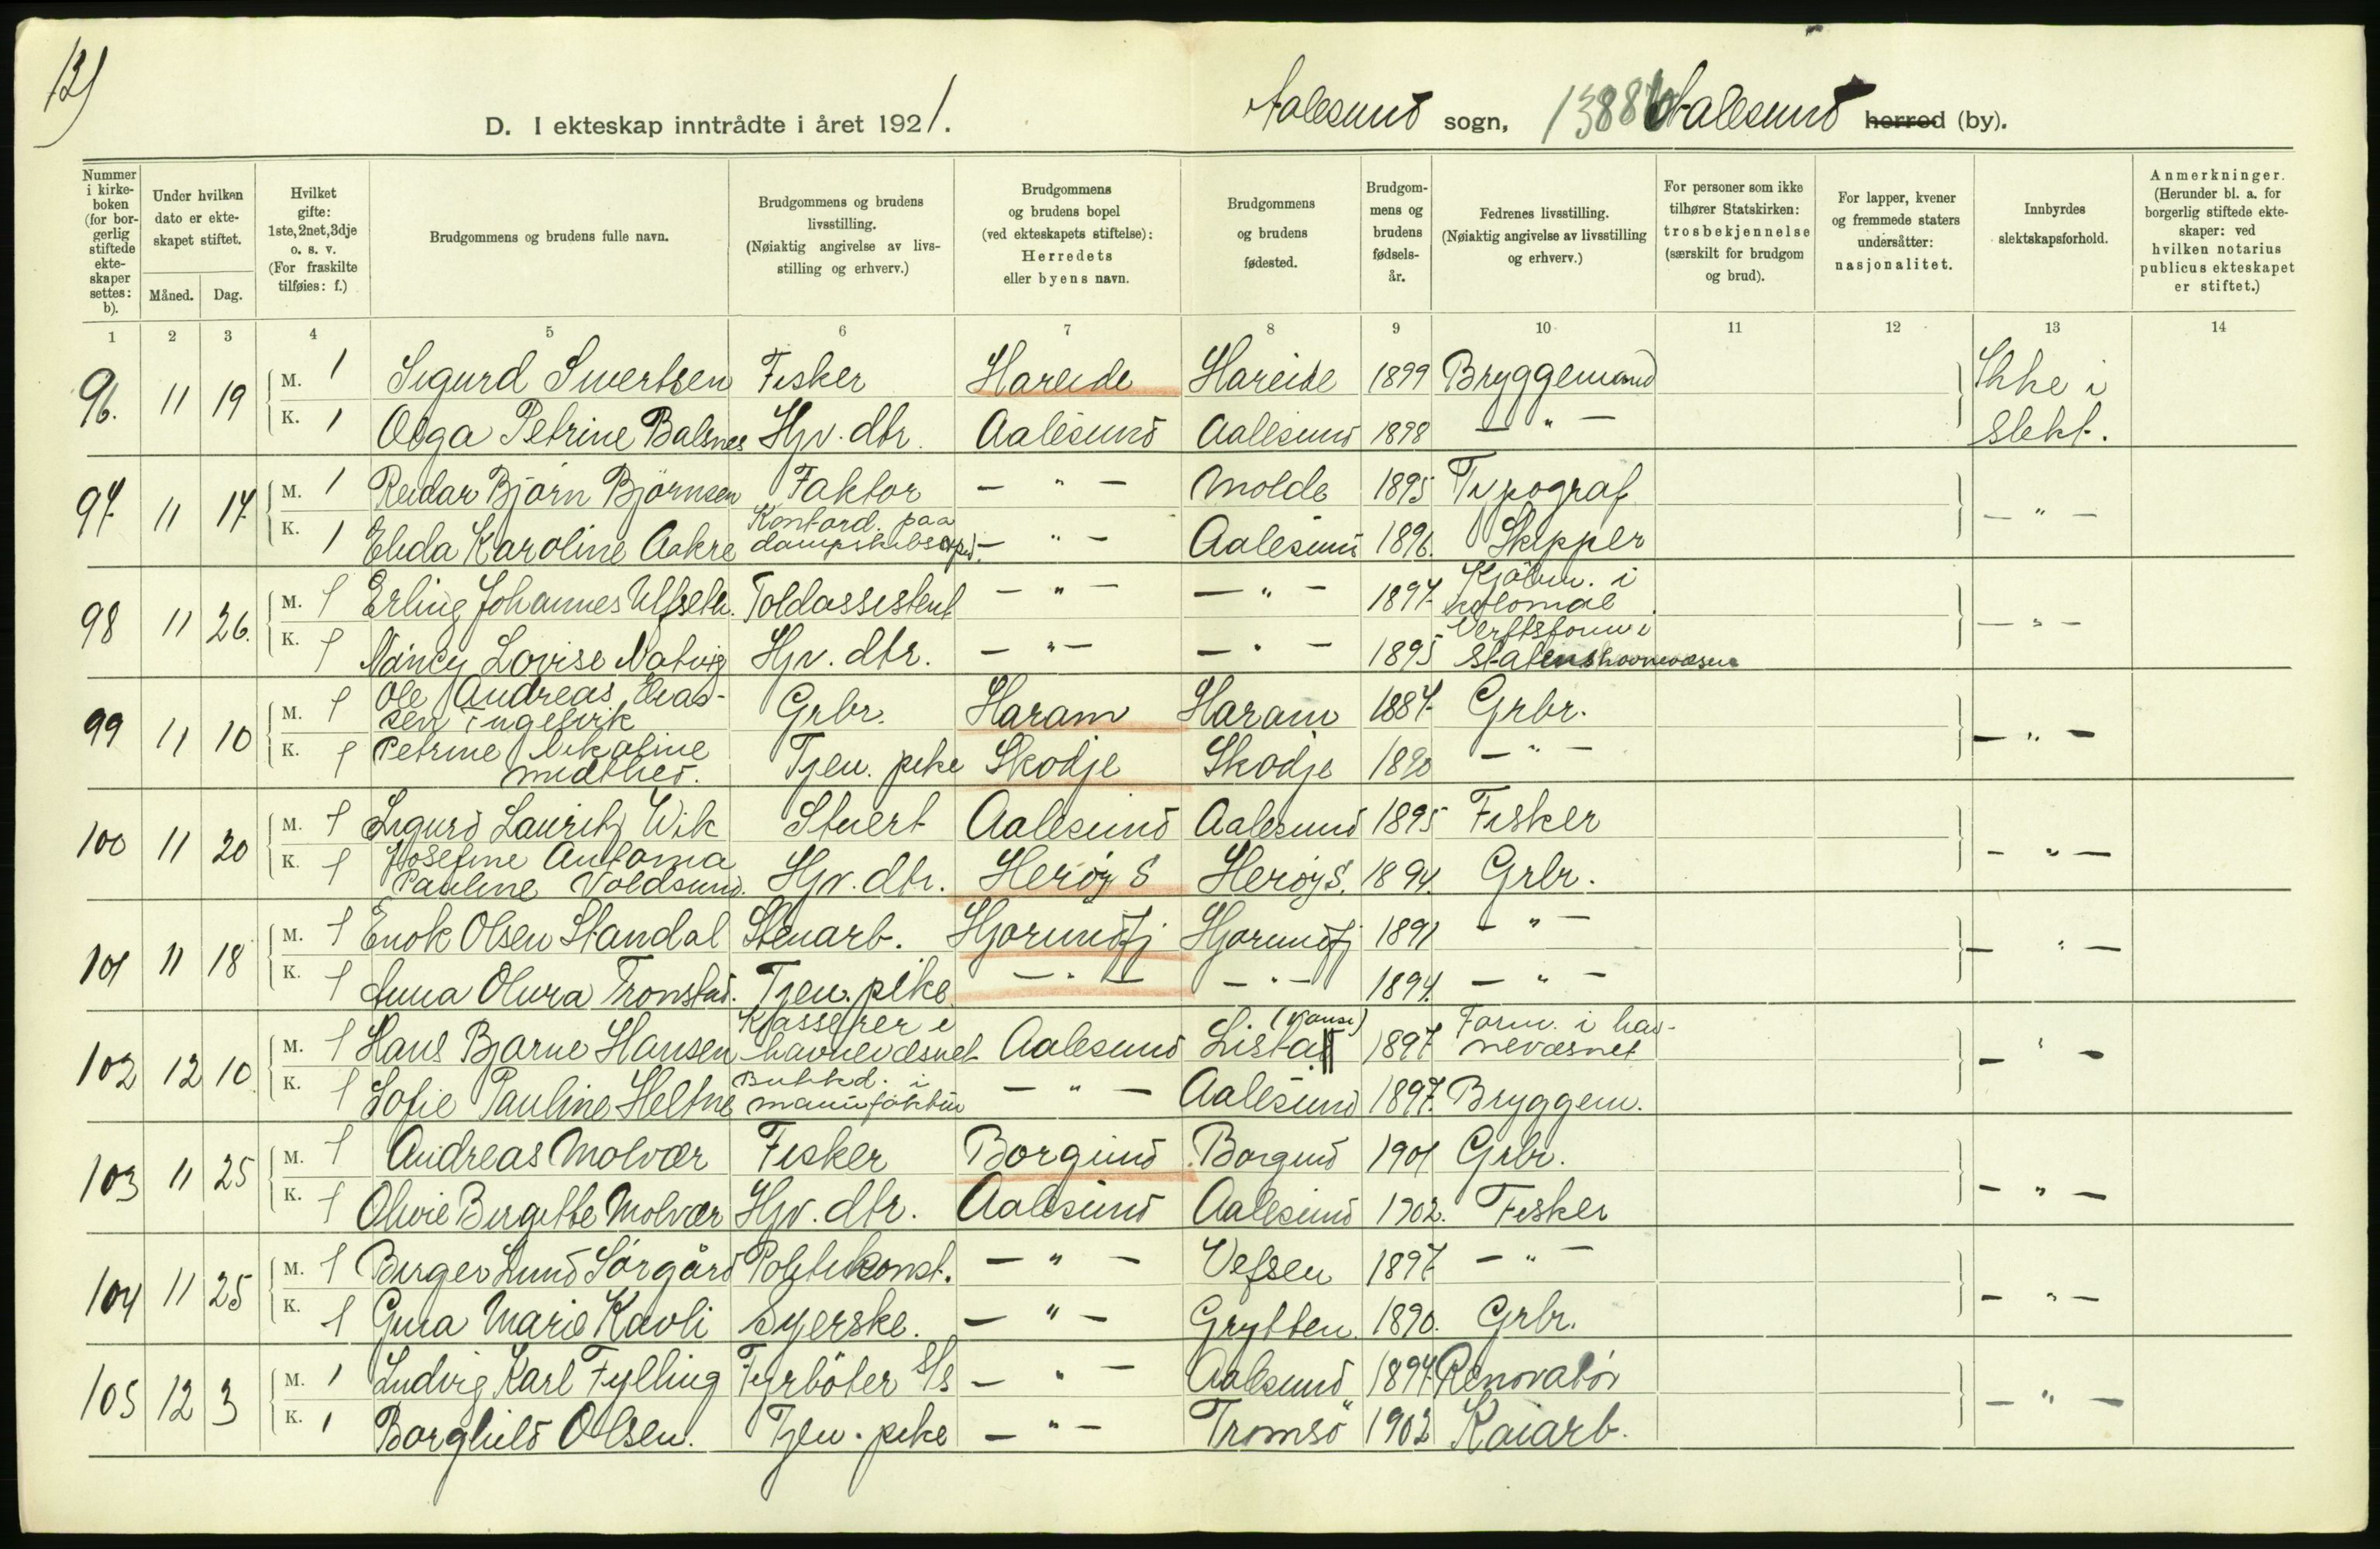 12)
D. I ekteskap inntrådte i året 1921.
Aalesund sogn, Aalesund herred (by).
Nummer i kirkeboken (for borgerlig stiftede ekteskaper settes: b).
Under hvilken dato er ekteskapet stiftet.
Måned. Dag.
Hvilket gifte: 1ste, 2net, 3dje o. s. v. (For fraskilte tilføies: f.)
Brudgommens og brudens fulle navn.
Brudgommens og brudens livsstilling. (Nøiaktig angivelse av livsstilling og erhverv.)
Brudgommens og brudens bopel (ved ekteskapets stiftelse): Herredets eller byens navn.
Brudgommens og brudens fødested.
Brudgommens og brudens fødselsår.
Fedrenes livsstilling. (Nøiaktig angivelse av livsstilling og erhverv.)
For personer som ikke tilhører Statskirken: trosbekjennelse (særskilt for brudgom og brud).
For lapper, kvener og fremmede staters undersåtter: nasjonalitet.
Innbyrdes slektskapsforhold.
Anmerkninger. (Herunder bl. a. for borgerlig stiftede ekteskaper: ved hvilken notarius publicus ekteskapet er stiftet.)
1 2 3 4 5 6 7 8 9 10 11 12 13 14
96. 11 19 M. 1 Sigurd Sivertsen Fisker Hareide Hareide 1899 Bryggemand Ikke i
K. 1 Olga Petrine Balsnes Hjv. dtr. Aalesund Aalesund 1898 — " — slekt.
97 11 17 M. 1 Reidar Bjørn Bjørnsen Faktor — " — Molde 1895 Typograf — " —
K. 1 Elida Karoline Aakre Kontord. paa dampskibsexped. — " — Aalesund 1896. Skipper
98 11 26. M. 1 Erling Johannes Ulfseth. Toldassistent — " — — " — 1897 i kolonial — " —
K. 1 Nancy Lovise Natvig Hjv. dtr. — " — — " — 1895 Verftsform i Statens havnevæsen
99 11 10 M. 1 Ole Andreas Eliassen Fugelvik Grbr. Haram Haram 1887 Grbr. — " —
K. 1 Petrine Nikoline Midthed. Tjen. pike Skodje Skodje 1890 — " —
100 11 20 M. 1 Sigurd Lauritz Wik Stuert Aalesund Aalesund 1895 Fisker — " —
K. 1 Josefine Antonia Pauline Voldsund. Hjv. dtr. Herøy S Herøy S. 1894. Grbr.
101 11 18 M. 1 Enok Olsen Standal Stenarb. Hjørundfj Hjørundfj 1891 — " — — " —
K. 1 Anna Olivia Tronstad. Tjen. pike — " — — " — 1894. — " —
102 12 10 M. 1 Hans Bjarne Hansen Kasserer i havnevæsnet Aalesund Lista (Vanse) 1897 Form. i havnevæsnet — " —
K. 1 Sofie Pauline Heltne Butikkd. i manufaktur — " — Aalesund 1897. Bryggem.
103 11 25 M. 1 Andreas Molvær Fisker Borgund Borgund 1901 Grbr. — " —
K. 1 Olivie Bergitte Molvær Hjv. dtr. Aalesund Aalesund 1902. Fisker
104 11 25 M. 1 Birger Lund Sørgård Politikonst. — " — Vefsen 1897 — " — — " —
K. 1 Gina Marie Kavli Syerske. — " — Grytten 1890. Grbr.
105 12 3 M. 1 Ludvig Karl Fylling Fyrbøter S/S — " — Aalesund 1894 Renovatør — " —
K. 1 Borghild Olsen. Tjen. pike — " — Tromsø 1902 Kaiarb.